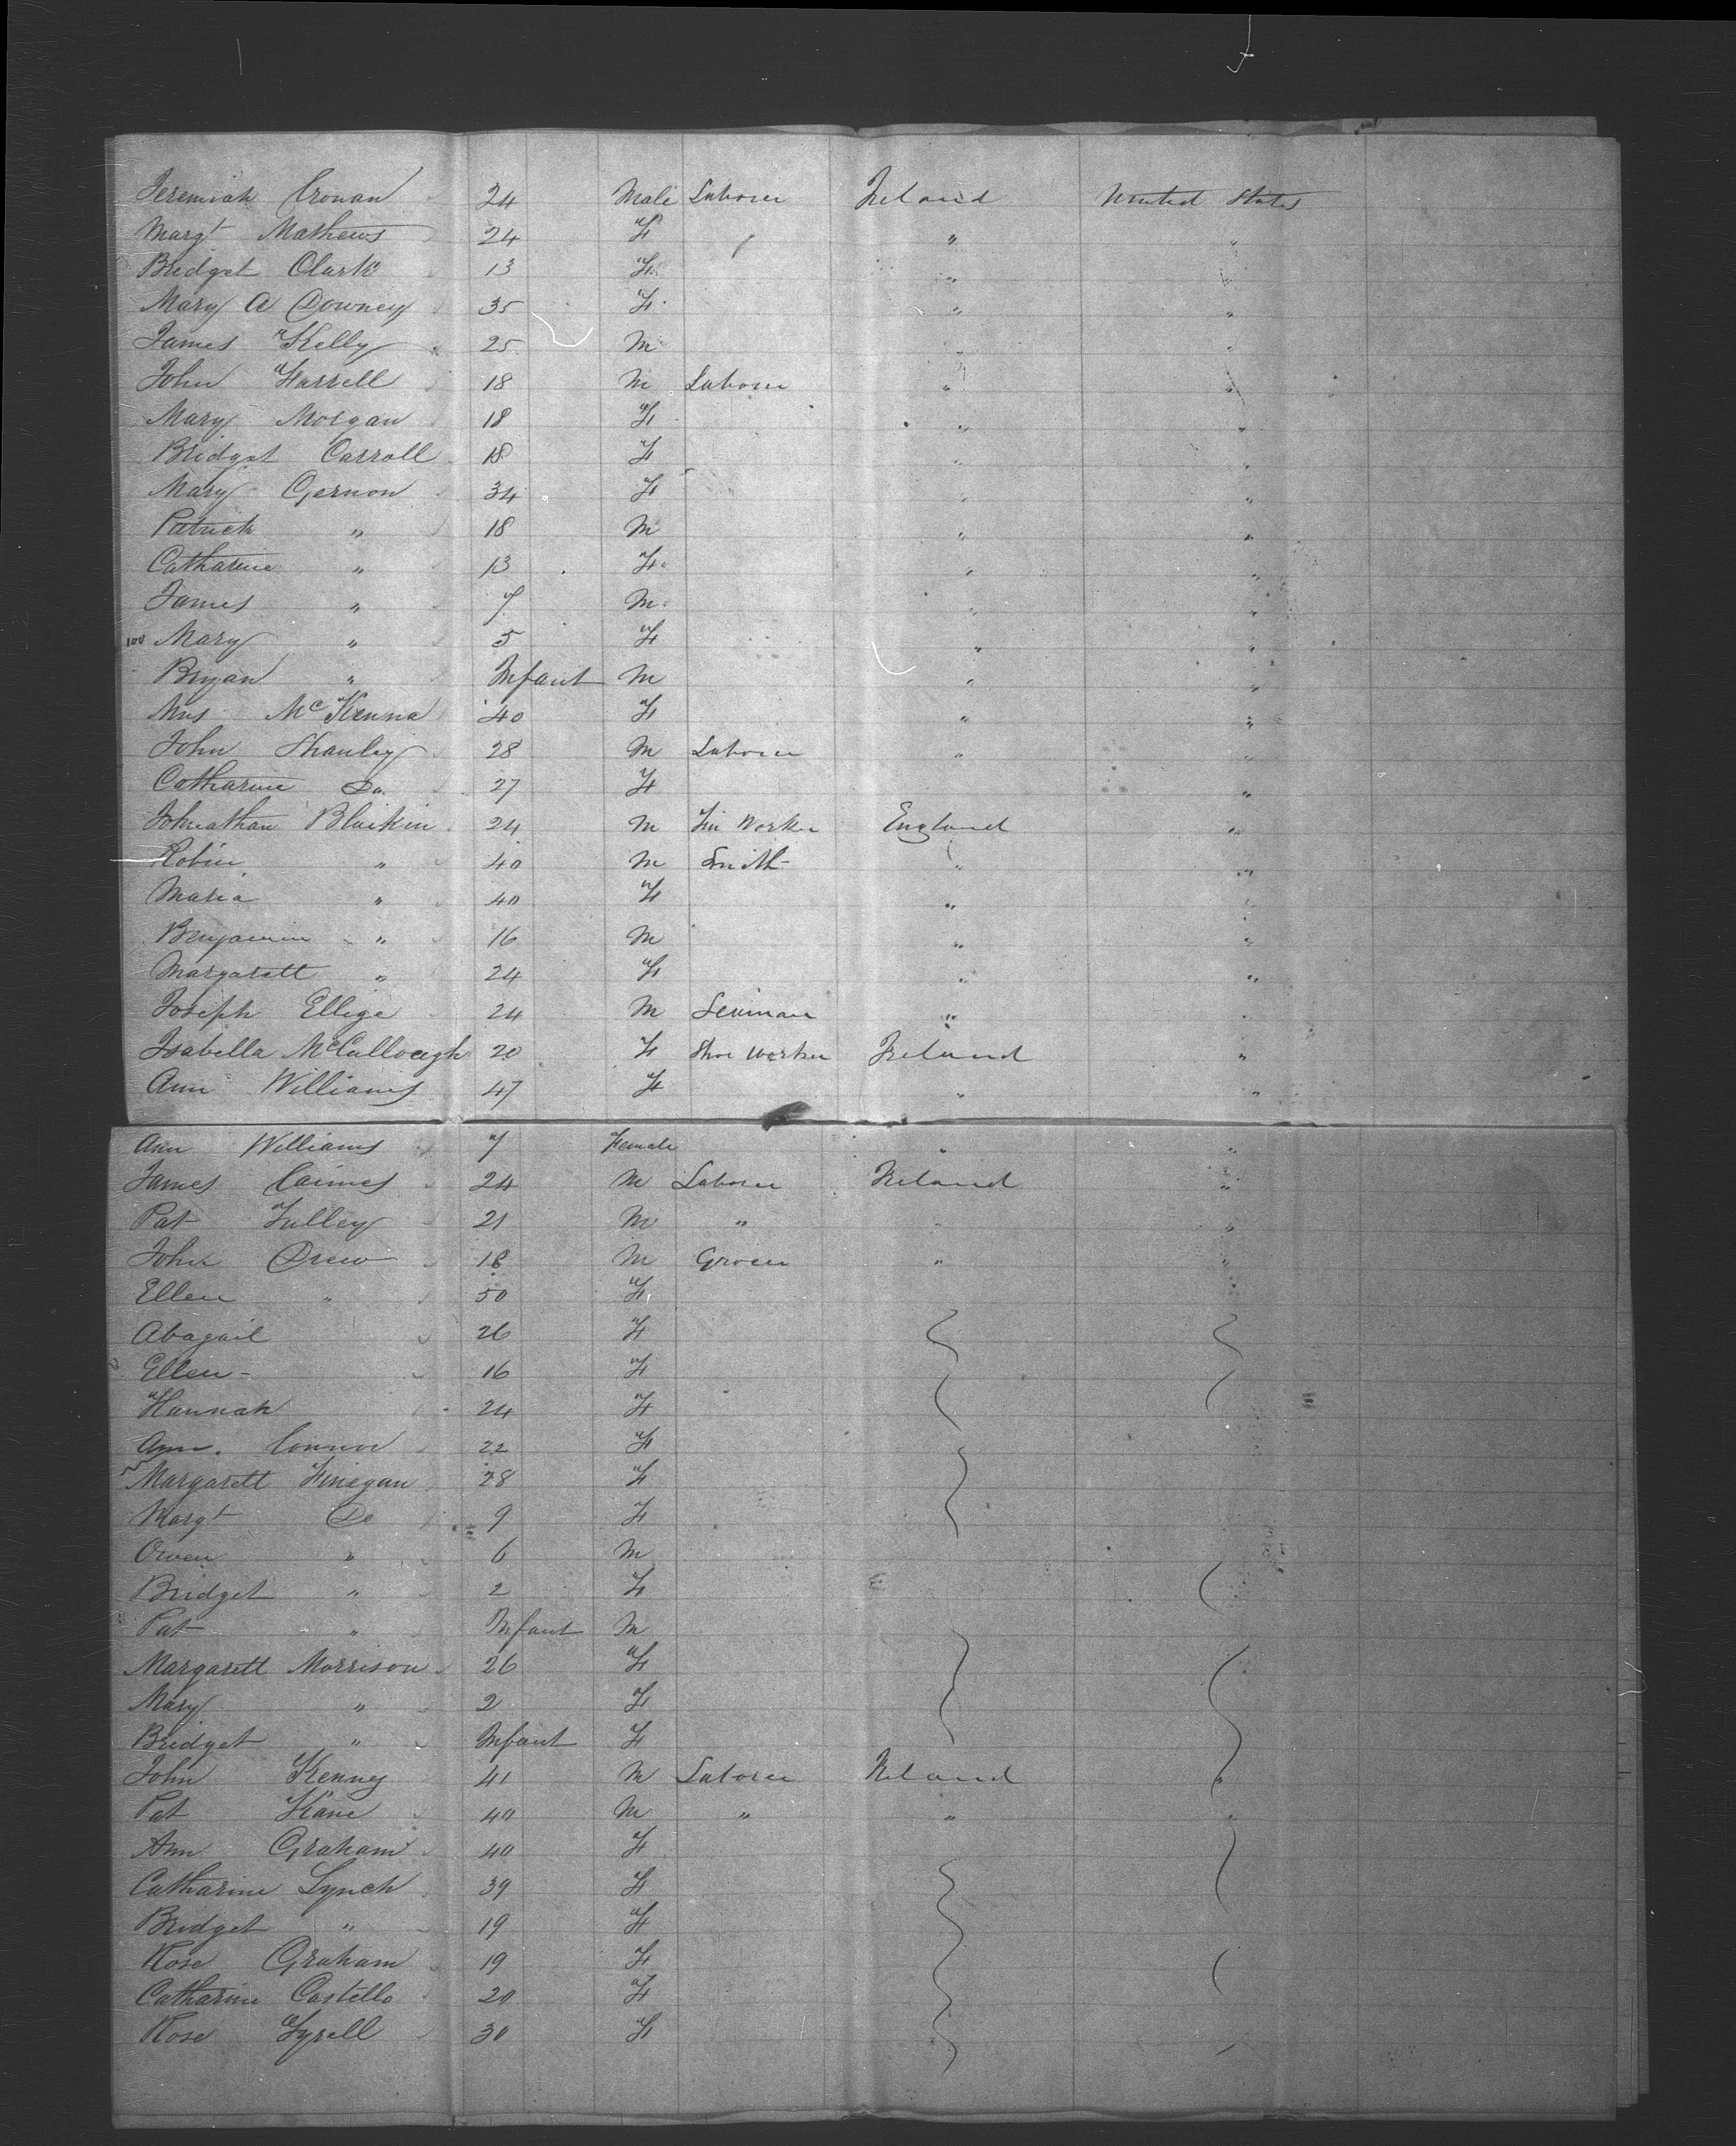 Jeremiah Cronan 24 Male Laborer Ireland United States
Margt Mathews 24 F " "
Bridget Clark 13 F " "
Mary A Downey 35 F " "
James Kelly 25 M " "
John Farrell 18 M Laborer " "
Mary Morgan 18 F " "
Bridget Carroll 18 F " "
Mary Gernon 34 F " "
Patrick " 18 M " "
Catharine " 13 F " "
James " 7 M " "
100 Mary " 5 F " "
Bryan " Infant M " "
Mrs McKenna 40 F " "
John Shanley 28 M Laborer " "
Catharine Do. 27 F "
Johnathan Blaikin 24 M Tin Worker England "
Robin " 40 M Smith " "
Maria " 40 F " "
Benjamin " 16 M " "
Margarett " 24 F " "
Joseph Ellige 24 M Seaman " "
Isabella McCullough 20 F Shoe Worker Ireland "
Ann Williams 47 F " "
Ann Williams 7 Female " "
James Cairnes 24 M Laborer Ireland "
Pat Tulley 21 M " " "
John Drew 18 M Grocer " "
Ellen " 50 F
Abagail 26 F
Ellen - 16 F
Hannah 24 F
Ann. Connor 22 F
Margarett Finegan 28 F
Margt Do 9 F
Owen " 6 M
Bridget " 2 F
Pat " Infant M
Margarett Morrison 26 F
Mary " 2 F
Bridget " Infant F
John Kenney 41 M Laborer Ireland "
Pat Kane 40 M " " "
Ann Graham 40 F
Catharine Lynch 39 F
Bridget " 19 F
Rose Graham 19 F
Catharine Costello 20 F
Rose Tyrell 30 F